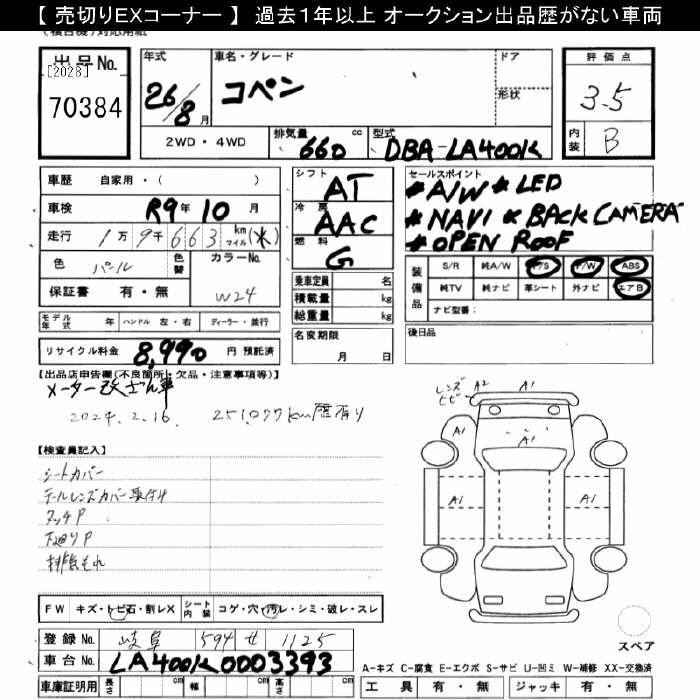 【 売切りEXコーナー 】 過去1年以上 オークション出品歴がない車両
出品No.
[2028]
70384
年式 26/8 月
車名・グレード コペン
ドア
形状
評価点 3.5
内装 B
2WD・4WD
排気量 660 cc
型式 DBA-LA400K
車歴 自家用・( )
車検 R9年 10月
走行 1万 9千 663 km マイル (*)
色 パール
色替
カラーNo. W24
保証書 有・無
モデル年式 年 ハンドル 左・右 ディーラー・並行
リサイクル料金 8,990 円 預託済
シフト AT
冷房 AAC
燃料 G
乗車定員 名
積載量 kg
総重量 kg
名変期限 月 日
セールスポイント
*A/W *LED
*NAVI *BACK CAMERA
*OPEN ROOF
装備品 S/R 純A/W P/S P/W ABS
純TV 純ナビ 革シート 外ナビ エアB
ナビ型番:
後日品
【出品店申告欄(不良箇所・欠品・注意事項等)】
メーター改ざん車
2024.2.16 251,077km履有り
【検査員記入】
シートカバー
テールレンズカバー取付け
タッチP
下廻りP
排気もれ
レンズヒビ A2 A1
A1 A1
A1 A1
FW キズ・トビ石・割レX シート内装 コゲ・穴・汚レ・シミ・破レ・スレ
登録No. 岐阜 594 せ 1125
車台No. LA400K0003393
スペア
A-キズ C-腐食 E-エクボ S-サビ U-凹ミ W-補修 XX-交換済
車庫証明用 長さ cm 幅 cm 高さ cm
工具 有・無 ジャッキ 有・無